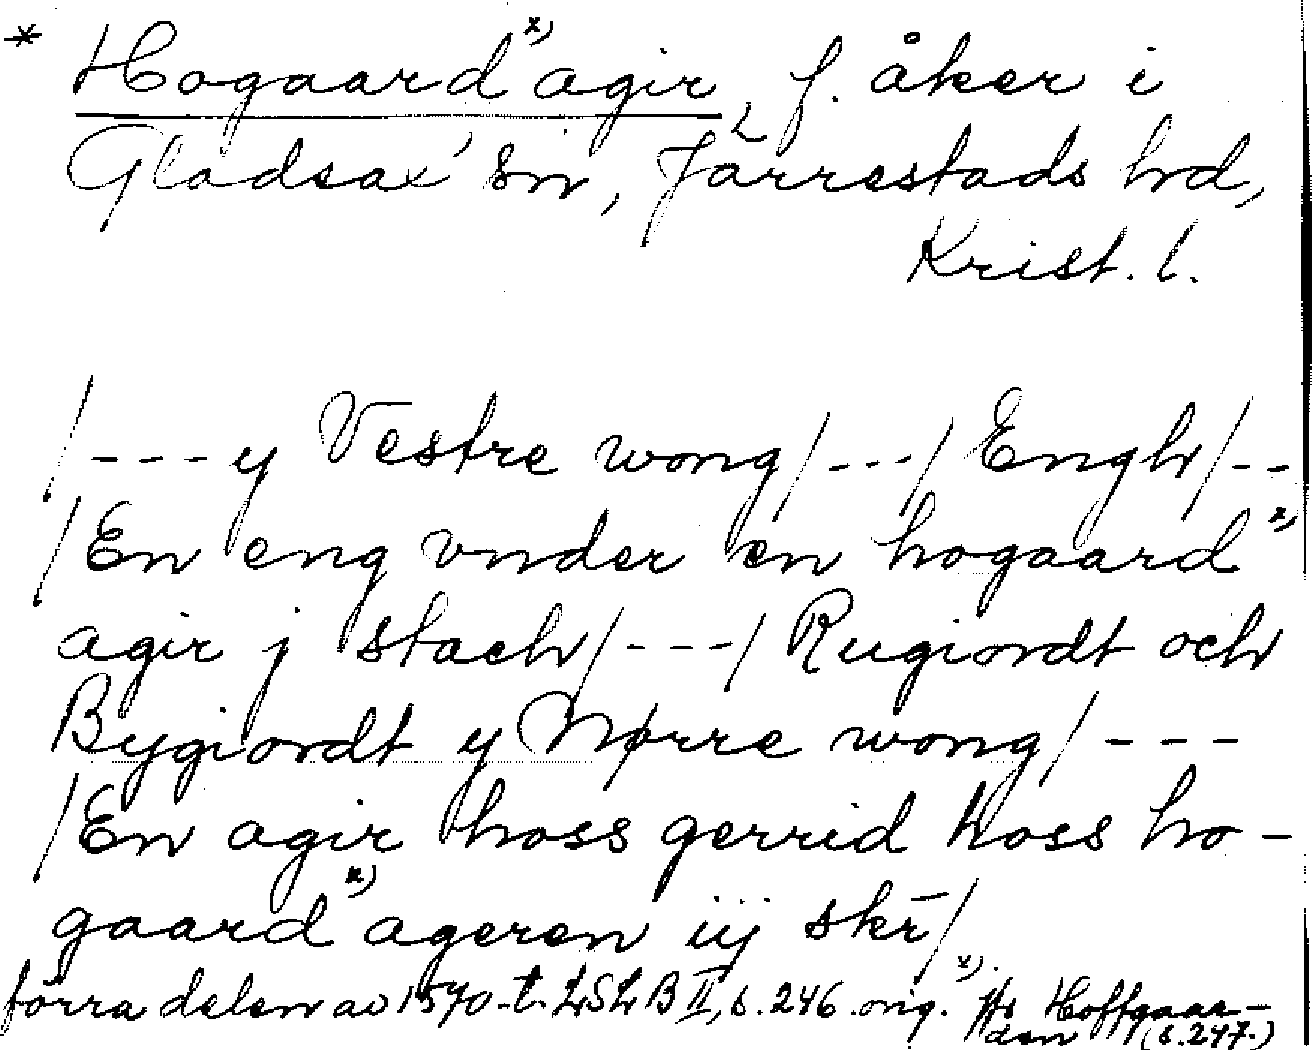 * Hogaard x) agir, f. åker i
Gladsax' sn, Järrestads hd,
Krist. l.
/---y Vestre wong/---/ Engh/--
/En eng vnder en hogaard x)
agir j stach/---/ Rugiordt och
Bygiordt y Nørre wong/---
/En agir hoss gerrid hoss ho-
gaard x) ageren iij skr/
förra delen av 1570-t. LSLB II, s. 246 orig. x) Hoffgaar-
den (s. 247.)